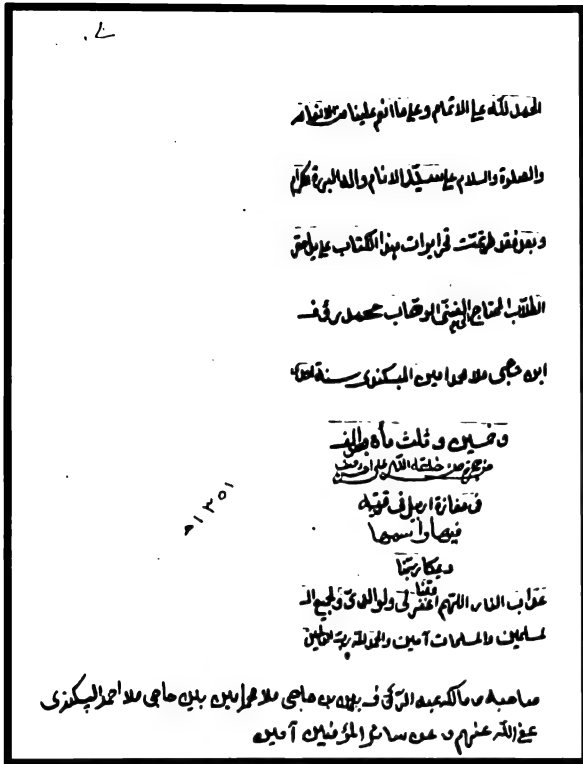 الحمد لله على الاتمام وعلى ما انعم علينا من الانعام
والصلوة والسلام على سيد الانام واله البررة الكرام
وبعد فقد تمت تحريرات هذا الكتاب على يد احقر
الطلاب المحتاج الى الغنى الوهاب محمد رؤف
ابن حاجى ملا محمد امين البسكندى سنة احدى
وخمسين وثلث مأة والف
من هجرة من خلقه الله على
فى مفازة اربيل فى قرية
فيها واسمها
عذاب النار اللهم اغفر لى ولوالدى ولجميع الـ
مسلمين والمسلمات آمين والحمد لله رب العالمين
١٣٥١هـ
صاحبه ومالكه عبد الرؤف بن حاجى ملا محمد امين بن حاجى ملا احمد البسكندى
عفى الله عنهم وعن سائر المؤمنين آمين